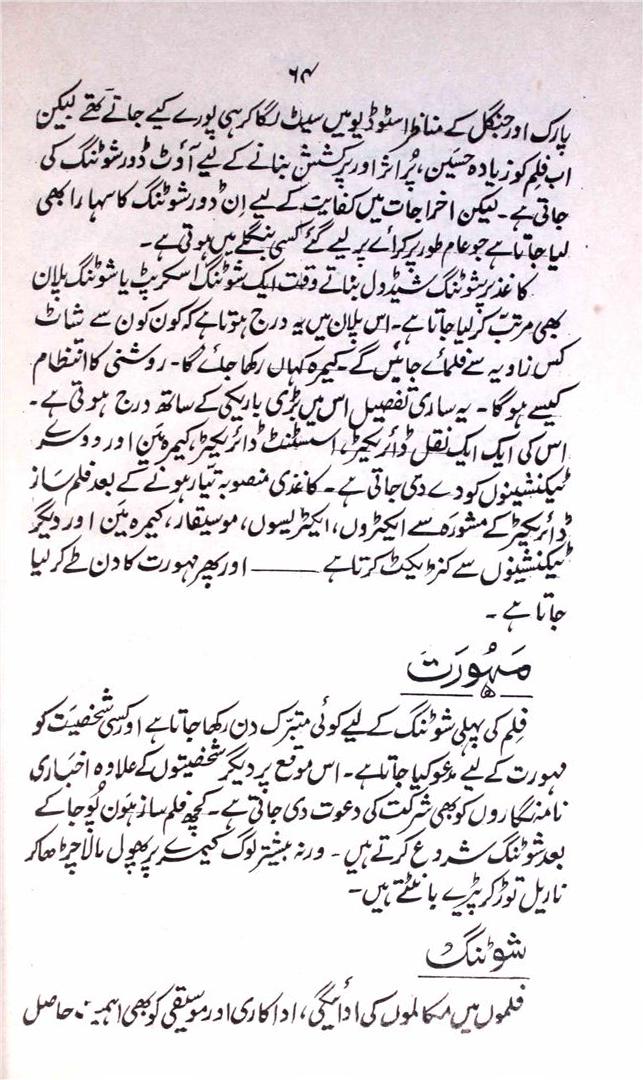 ۶۴
پارک اور جنگل کے مناظر اسٹوڈیو میں سیٹ لگا کر ہی پورے کیے جاتے تھے لیکن
اب فلم کو زیادہ حسین، پُر اثر اور پُر کشش بنانے کے لیے آؤٹ ڈور شوٹنگ کی
جاتی ہے۔ لیکن اخراجات میں کفایت کے لیے اِن ڈور شوٹنگ کا سہارا بھی
لیا جاتا ہے جو عام طور پر کرائے پر لیے گئے کسی بنگلے میں ہوتی ہے۔
کاغذ پر شوٹنگ شیڈول بناتے وقت ایک شوٹنگ اسکرپٹ یا شوٹنگ پلان
بھی مرتب کر لیا جاتا ہے۔ اس پلان میں یہ درج ہوتا ہے کہ کون کون سے شاٹ
کس زاویہ سے فلمائے جائیں گے۔ کیمرہ کہاں رکھا جائے گا۔ روشنی کا انتظام
کیسے ہو گا۔ یہ ساری تفصیل اس میں بڑی باریکی کے ساتھ درج ہوتی ہے۔
اس کی ایک ایک نقل ڈائریکٹر، اسسٹنٹ ڈائریکٹر، کیمرہ مَین اور دوسرے
ٹیکنشینوں کو دے دی جاتی ہے۔ کاغذی منصوبہ تیار ہونے کے بعد فلم ساز
ڈائریکٹر کے مشورہ سے ایکٹروں، ایکٹریسوں، موسیقار، کیمرہ مَین اور دیگر
ٹیکنشینوں سے کنٹریکٹ کرتا ہے ——— اور پھر مہورت کا دن طے کر لیا
جاتا ہے۔
مَہُورَت
فلم کی پہلی شوٹنگ کے لیے کوئی متبرّک دن رکھا جاتا ہے اور کسی شخصیت کو
مہورت کے لیے مدعو کیا جاتا ہے۔ اس موقع پر دیگر شخصیتوں کے علاوہ اخباری
نامہ نگاروں کو بھی شرکت کی دعوت دی جاتی ہے۔ کچھ فلم ساز ہَون پُوجا کے
بعد شوٹنگ شروع کرتے ہیں۔ ورنہ بیشتر لوگ کیمرے پر پھول مالا چڑھا کر
ناریل توڑ کر پیڑے بانٹتے ہیں۔
شوٹنگ
فلموں میں مکالموں کی ادائیگی، اداکاری اور موسیقی کو بھی اہمیت حاصل